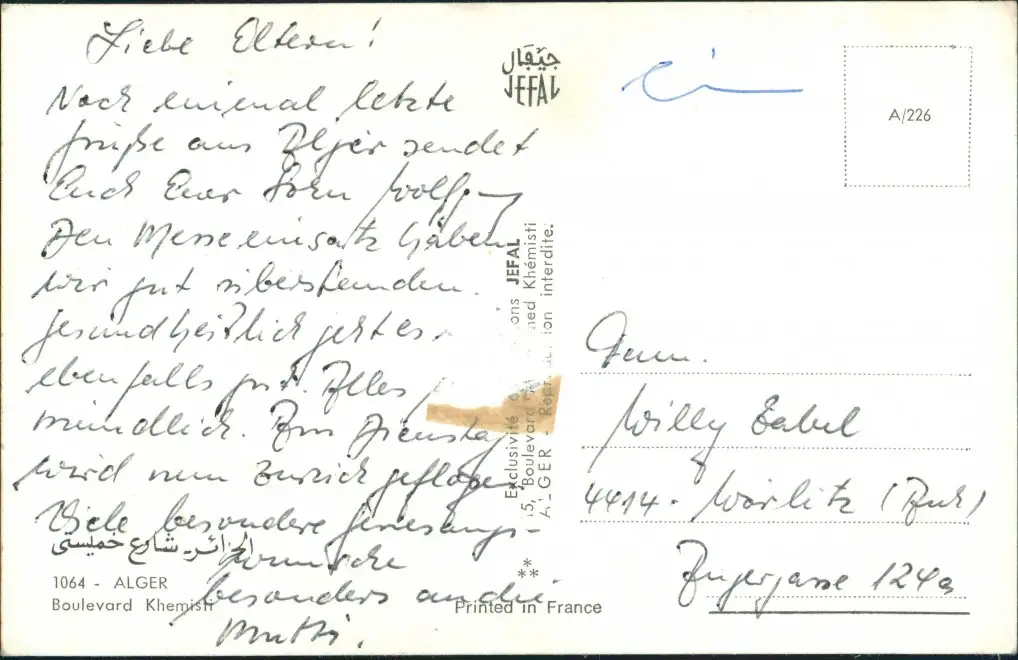 Liebe Eltern!
Noch einmal letzte
Grüße aus Algier sendet
Euch Euer Sohn Wolfgang
Den Messeeinsatz haben
wir gut überstanden.
Gesundheitlich geht es
ebenfalls gut. Alles
mündlich. Am Dienstag
wird nun zurück geflogen.
Viele besondere Genesungs-
wünsche
besonders an die
Mutti.
الجزائر - شارع خميستي
1064 - ALGER
Boulevard Khemisti
جيفال
JEFAL
Exclusivité ons JEFAL
5, Boulevard med Khémisti
ALGER - Reproduction interdite.
**
Printed in France
A/226
Fam.
Willy Zabel
4414 - Wörlitz (Anh)
124a